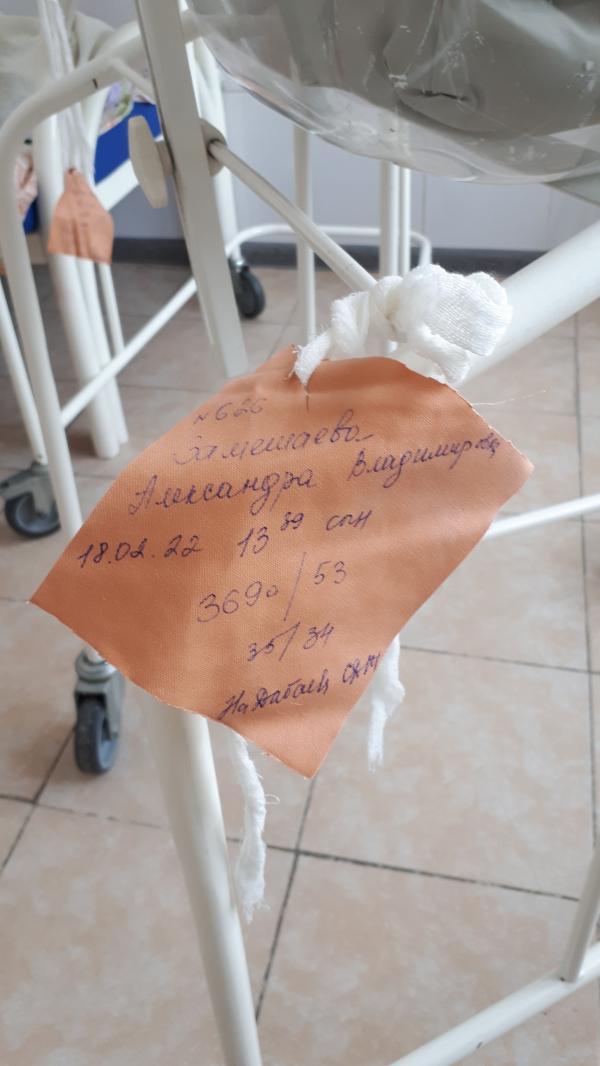 №626
Замешаева
Александра Владимировна
18.02.22 13 39 сын
3690/53
35/34